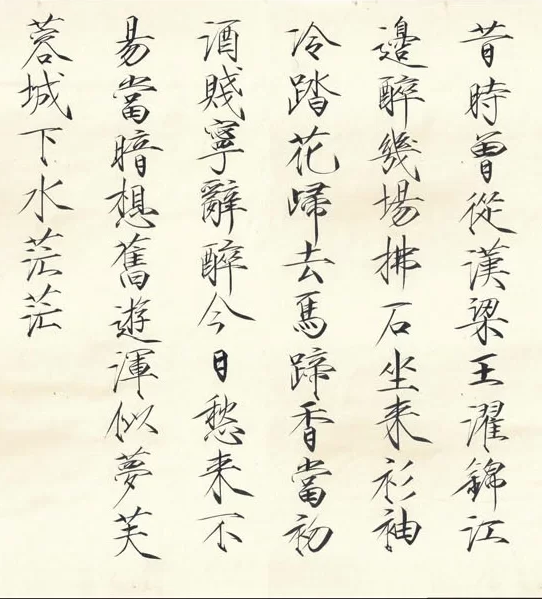 昔時曾從漢梁王濯錦江
邊醉幾場拂石坐来衫袖
冷踏花歸去馬蹄香當初
酒賤寧辭醉今日愁来不
易當暗想舊遊渾似夢芙
蓉城下水茫茫